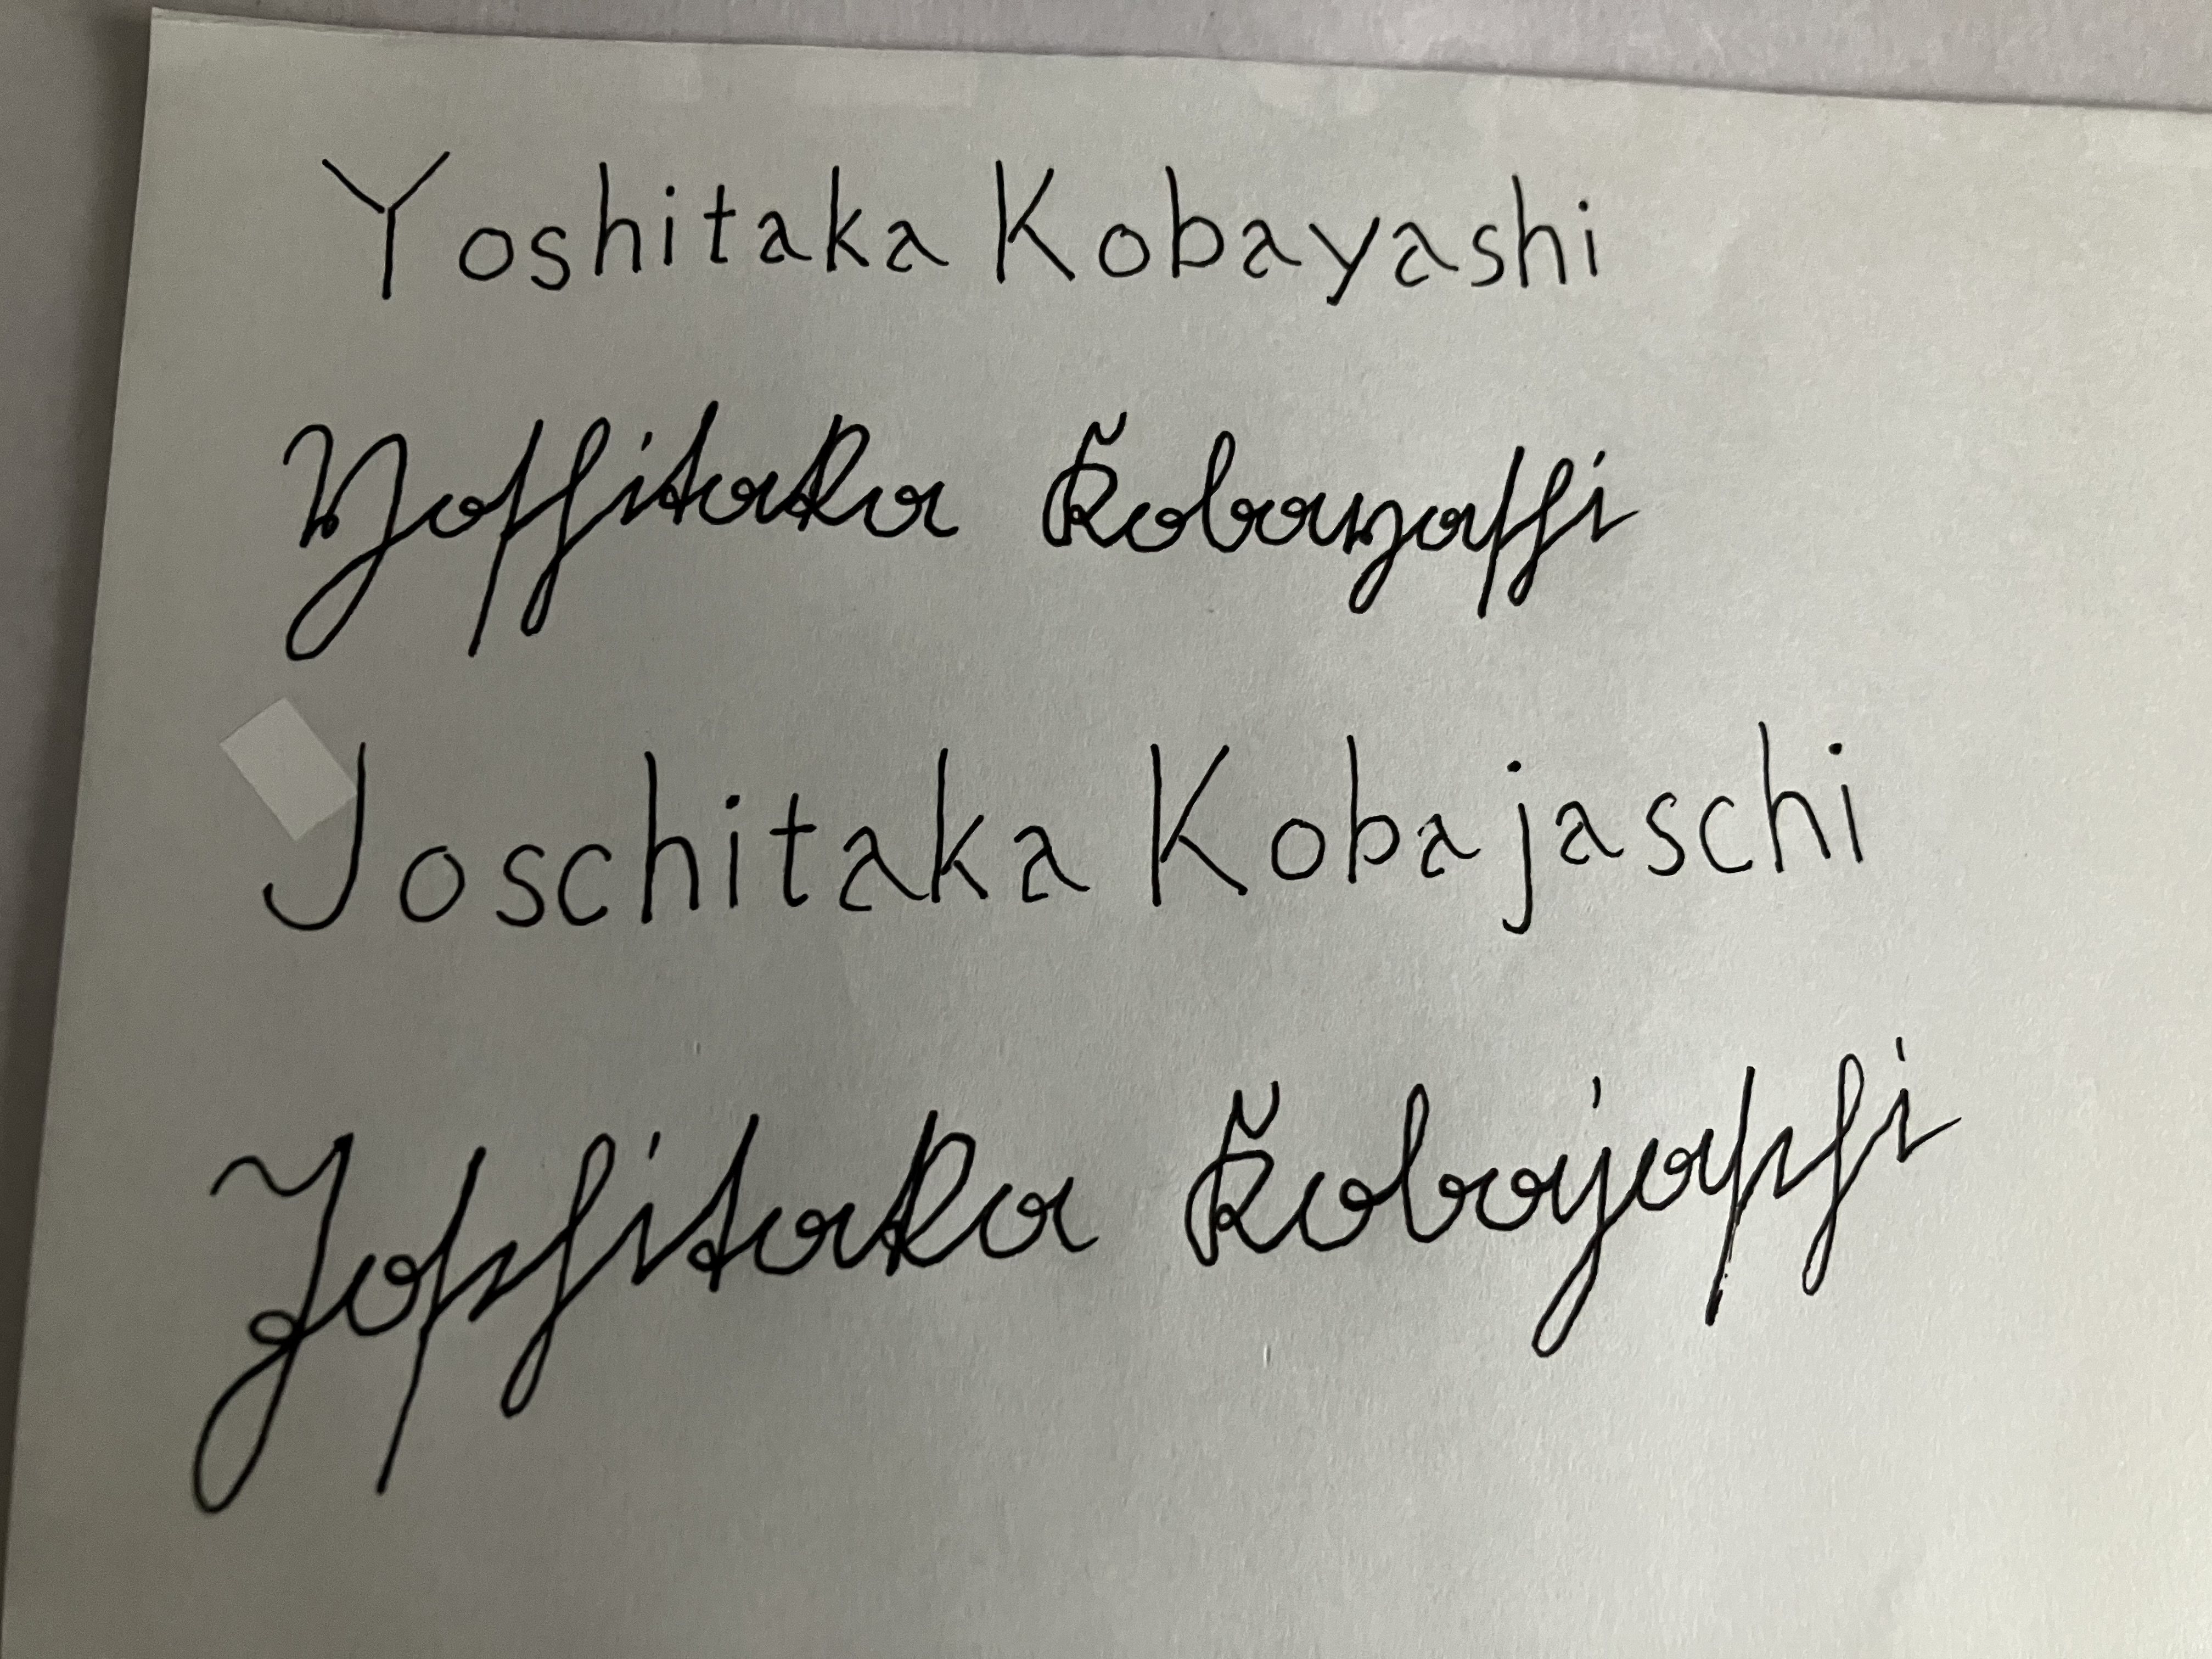 Yoshitaka Kobayashi
Yoshitaka Kobayashi
Joschitaka Kobajaschi
Joschitaka Kobajaschi